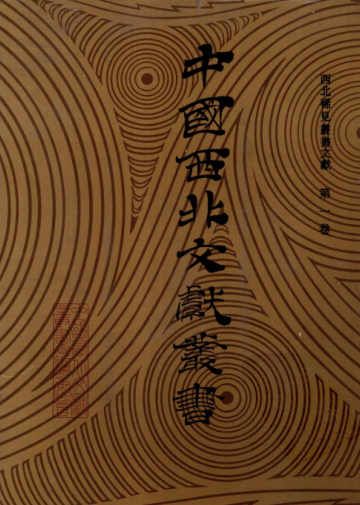 西北稀見叢書文獻 第一卷
中國西北文獻叢書